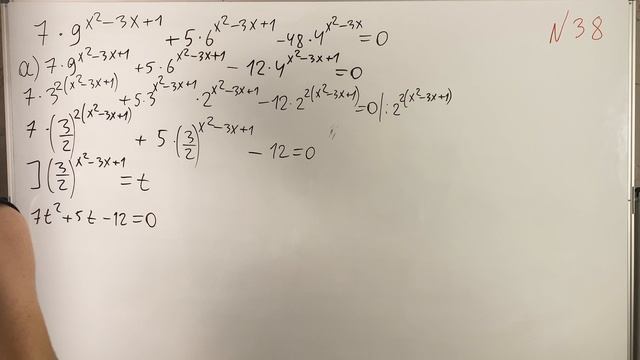 7 · 9^{x²-3x+1} + 5 · 6^{x²-3x+1} - 48 · 4^{x²-3x} = 0
N38
а) 7 · 9^{x²-3x+1} + 5 · 6^{x²-3x+1} - 12 · 4^{x²-3x+1} = 0
7 · 3^{2(x²-3x+1)} + 5 · 3^{x²-3x+1} · 2^{x²-3x+1} - 12 · 2^{2(x²-3x+1)} = 0 | : 2^{2(x²-3x+1)}
7 · (3/2)^{2(x²-3x+1)} + 5 · (3/2)^{x²-3x+1} - 12 = 0
] (3/2)^{x²-3x+1} = t
7t² + 5t - 12 = 0